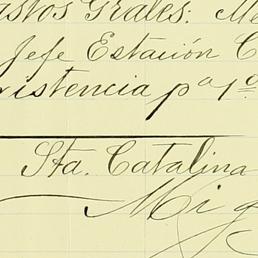 astos Grales. Me
Jefe Estación C
xistencia pª 1º
Sta. Catalina
Mig